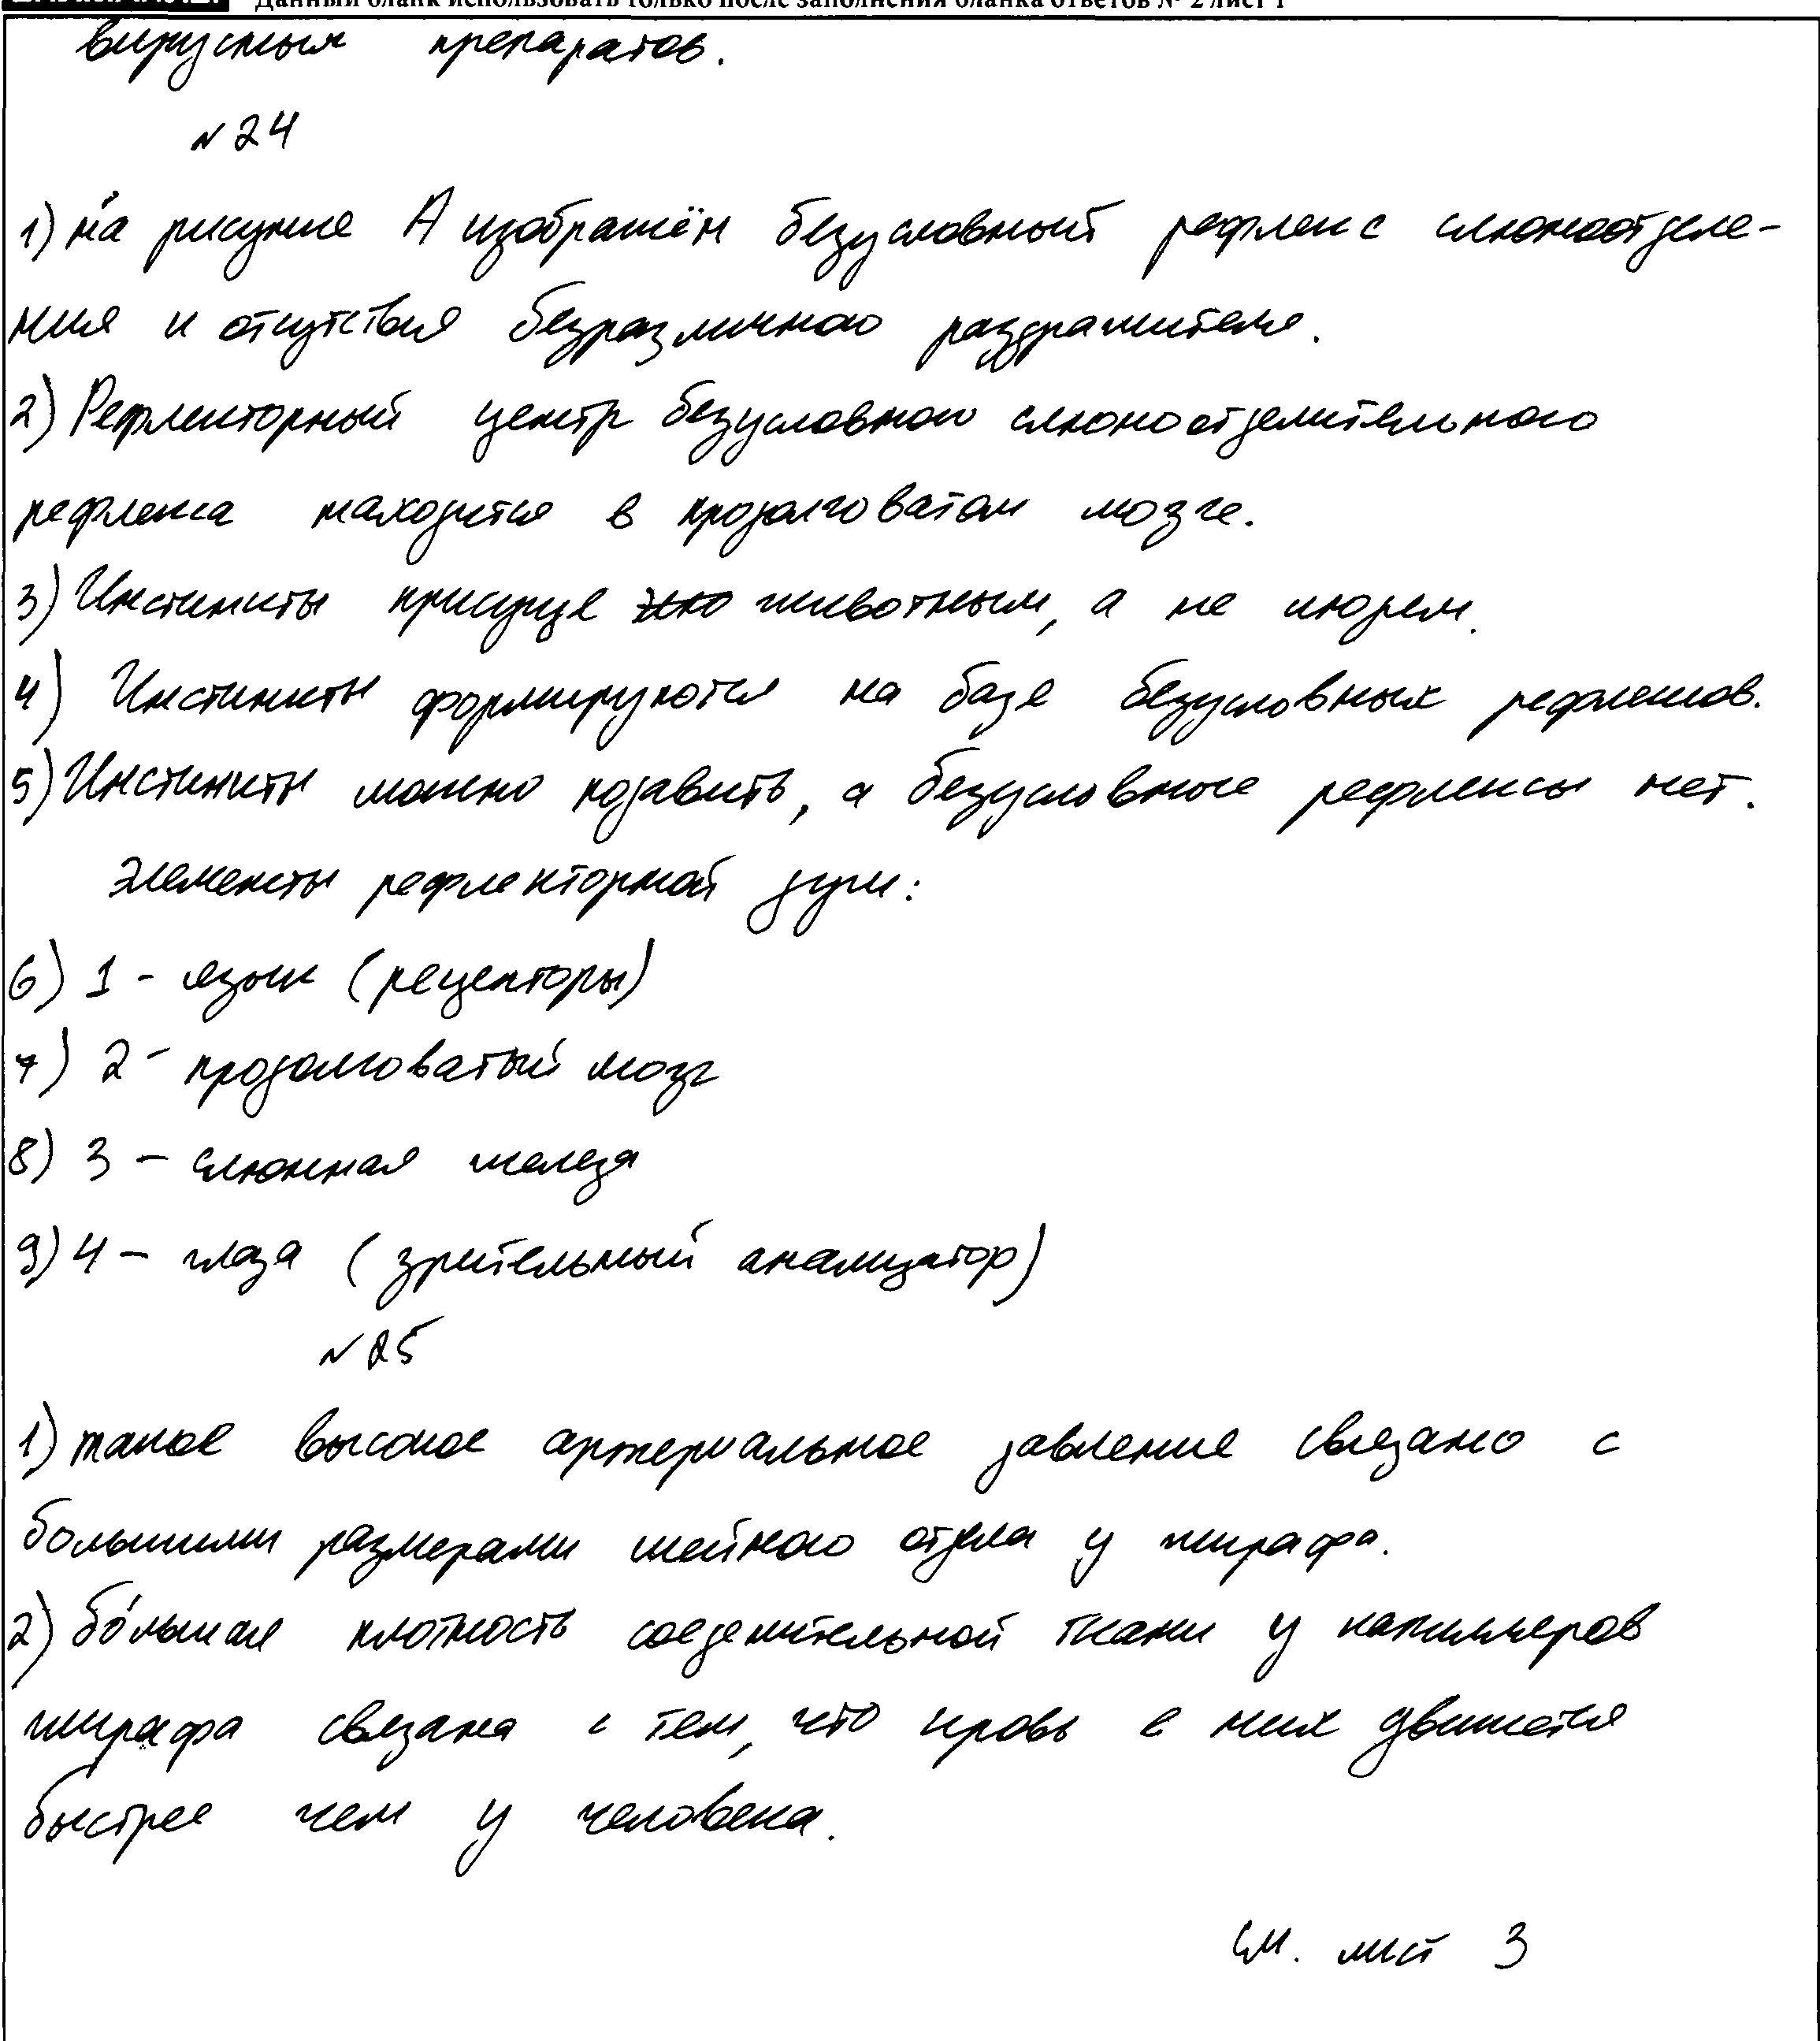 Данный бланк использовать только после заполнения бланка ответов № 2 лист 1
вирусных препаратов.
№ 24
1) на рисунке А изображён безусловный рефлекс слюноотделе-
ния и отсутствия безразличного раздражителя.
2) Рефлекторный центр безусловного слюноотделительного
рефлекса находится в продолговатом мозге.
3) Инстинкты присуще животным, а не людем.
4) Инстинкты формируются на базе безусловных рефлексов.
5) Инстинкты можно подавить, а безусловные рефлексы нет.
Элементы рефлекторной дуги:
6) 1 - язык (рецепторы)
7) 2 - продолговатый мозг
8) 3 - слюнная железа
9) 4 - глаза (зрительный анализатор)
№ 25
1) такое высокое артериальное давление связано с
большими размерами шейного отдела у жирафа.
2) бо́льшая плотность соеденительной ткани у капилляров
жирафа связана с тем, что кровь в них движется
быстрее чем у человека.
см. лист 3